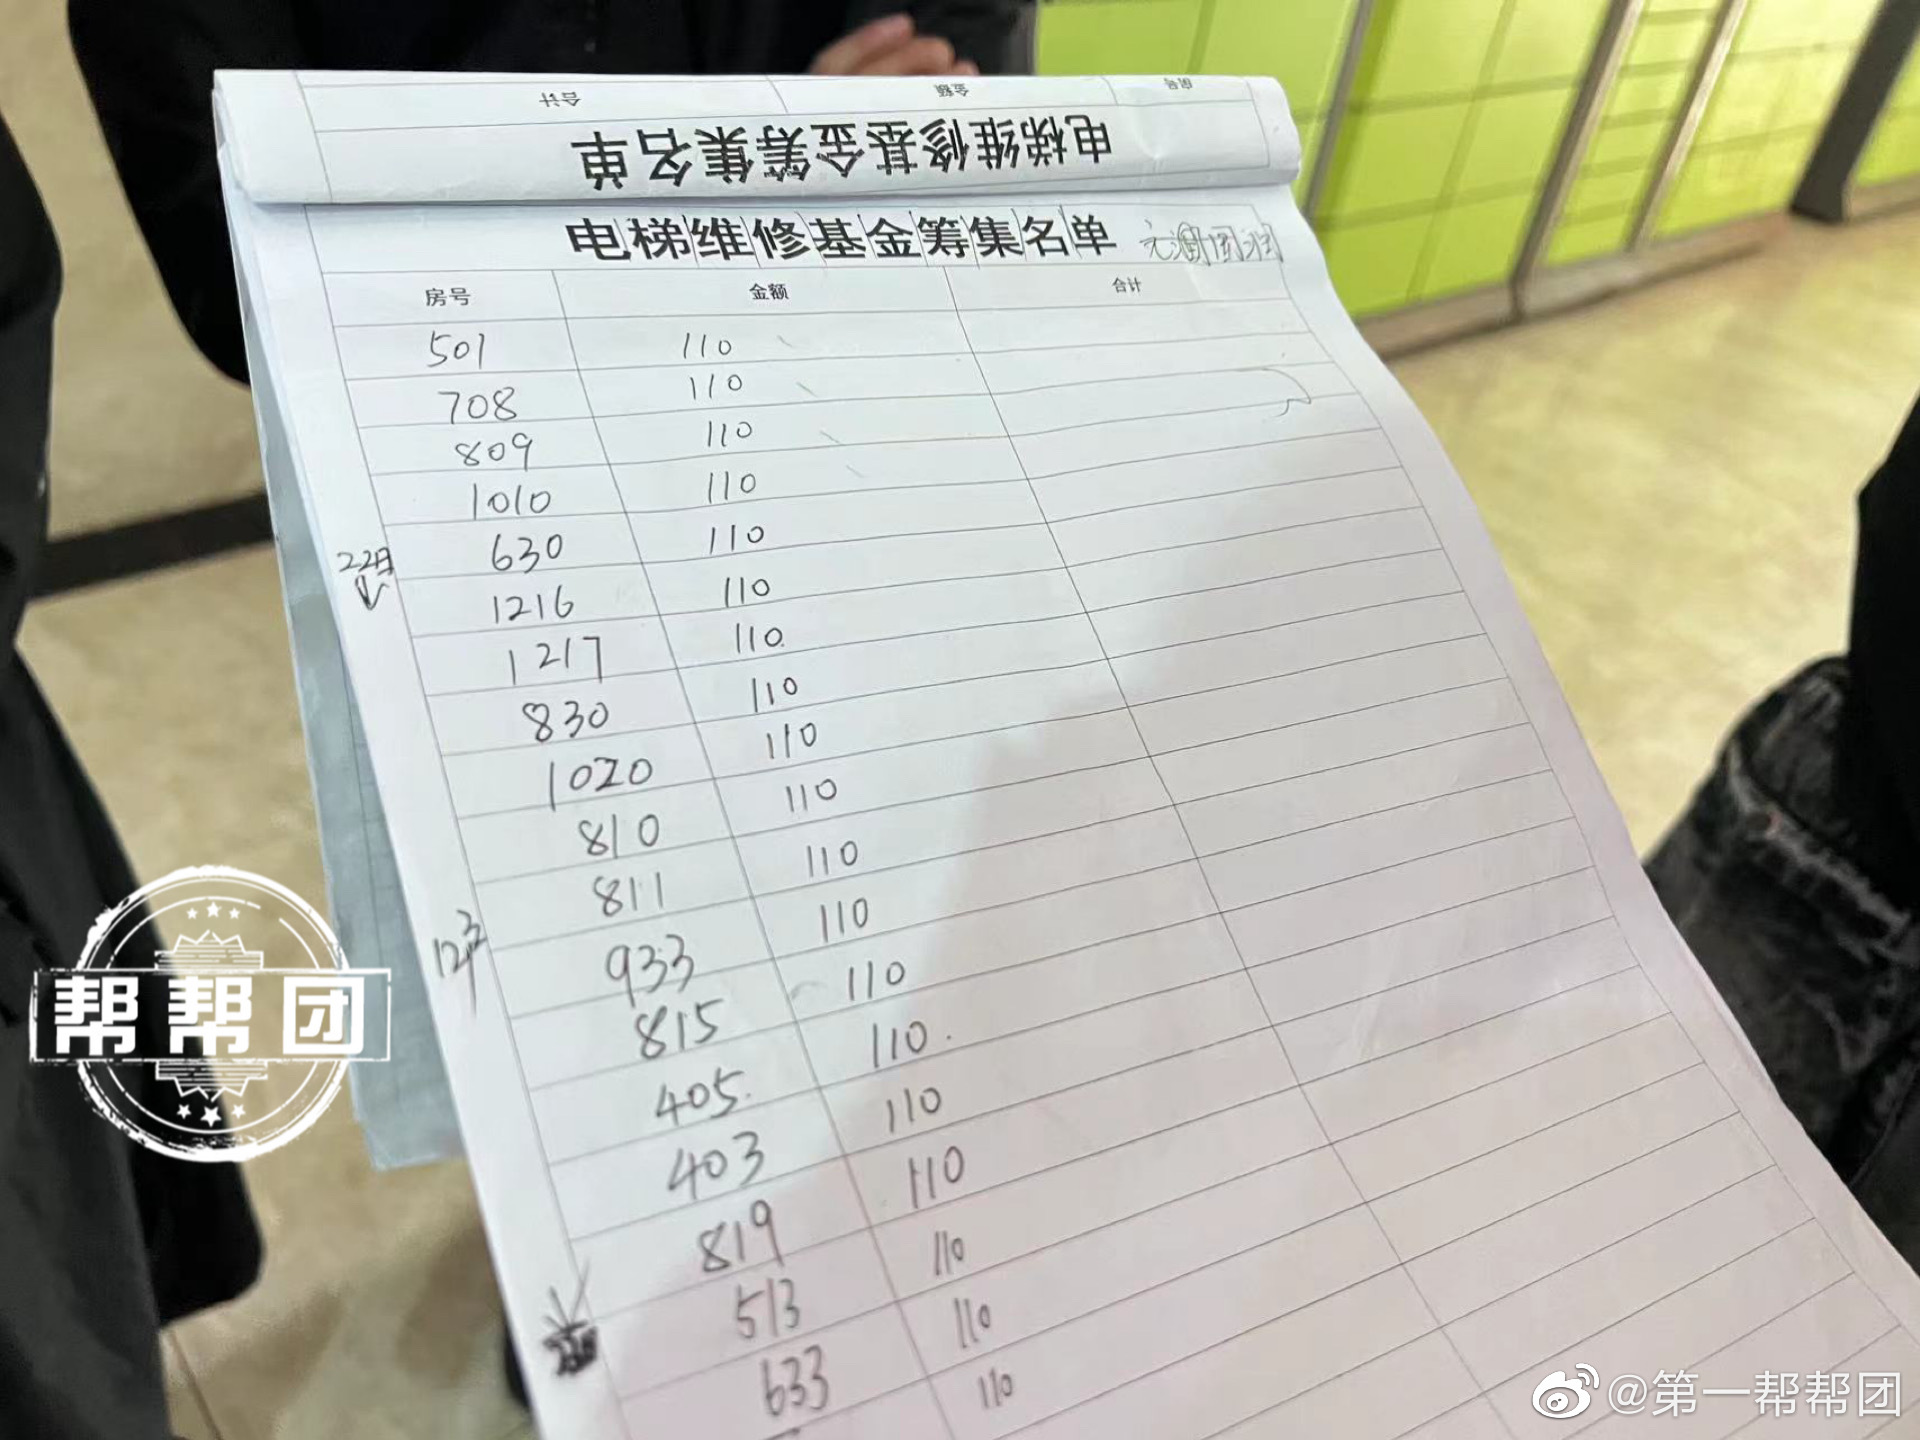 合计 金额 房号
电梯维修基金筹集名单
电梯维修基金筹集名单
房号 金额 合计
501 110
708 110
809 110
1010 110
630 110
22日
1216 110
1217 110
830 110
1020 110
810 110
811 110
933 110
815 110
405 110
403 110
819 110
513 110
633 110
110
帮帮团
@第一帮帮团